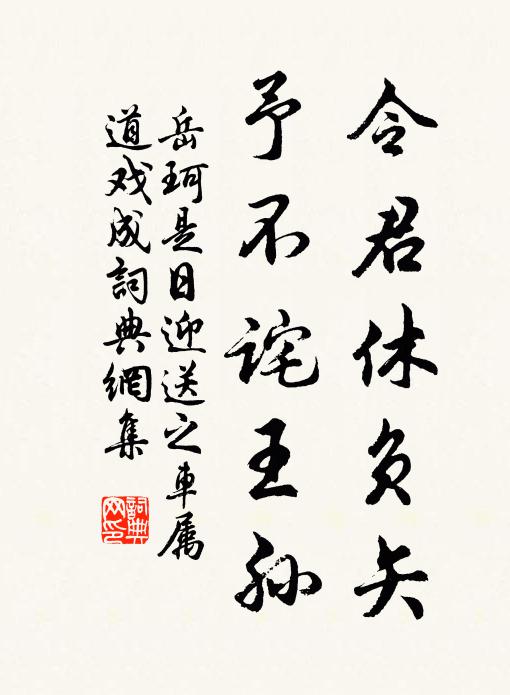 令君休负矢
予不诧王孙
岳珂是日迎送之車属
道戏成詞典網集
詞典
网印